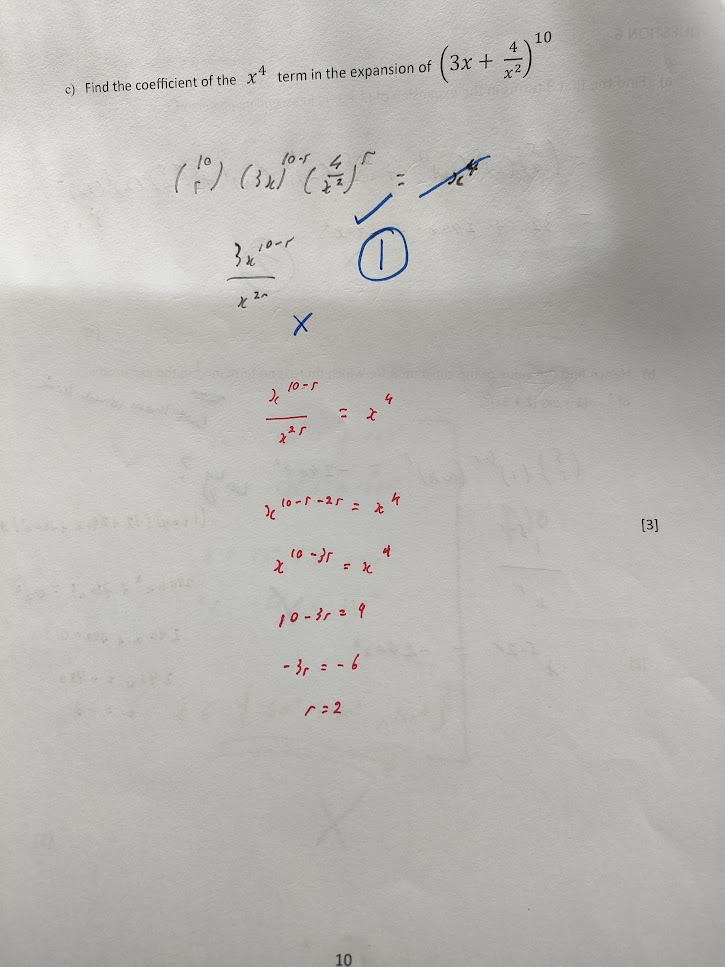 c) Find the coefficient of the x^4 term in the expansion of (3x + 4/x^2)^10
(10 r) (3x)^10-r (4/x^2)^r = x^4
✓
3x^10-r / x^2r
1
X
x^10-r / x^2r = x^4
x^10-r-2r = x^4
[3]
x^10-3r = x^4
10-3r = 4
-3r = -6
r = 2
10